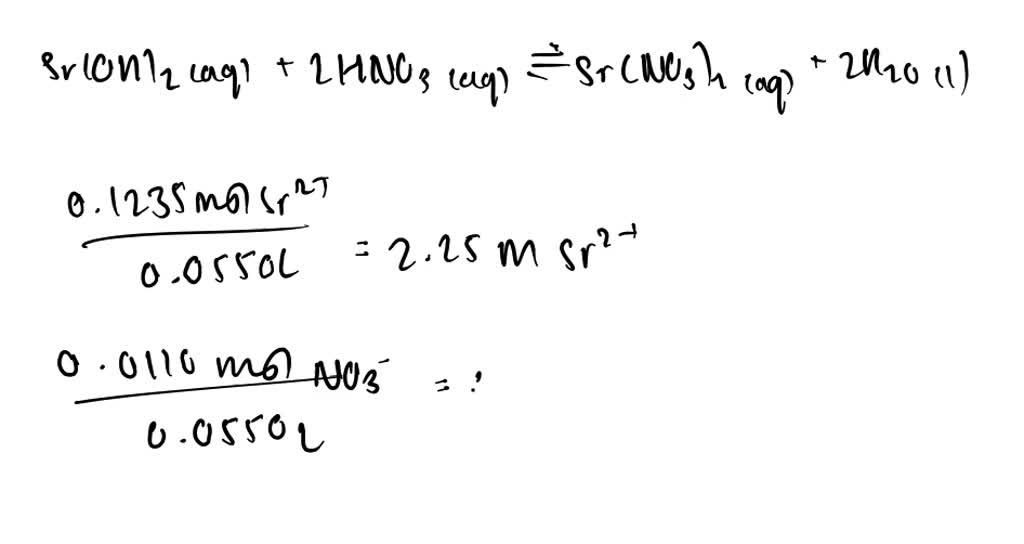 Sr(OH)2 (aq) + 2HNO3 (aq) ⇌ Sr(NO3)2 (aq) + 2H2O (l)
0.1235 mol Sr2+ / 0.0550L = 2.25 M Sr2+
0.0110 mol NO3- / 0.0550L = ?